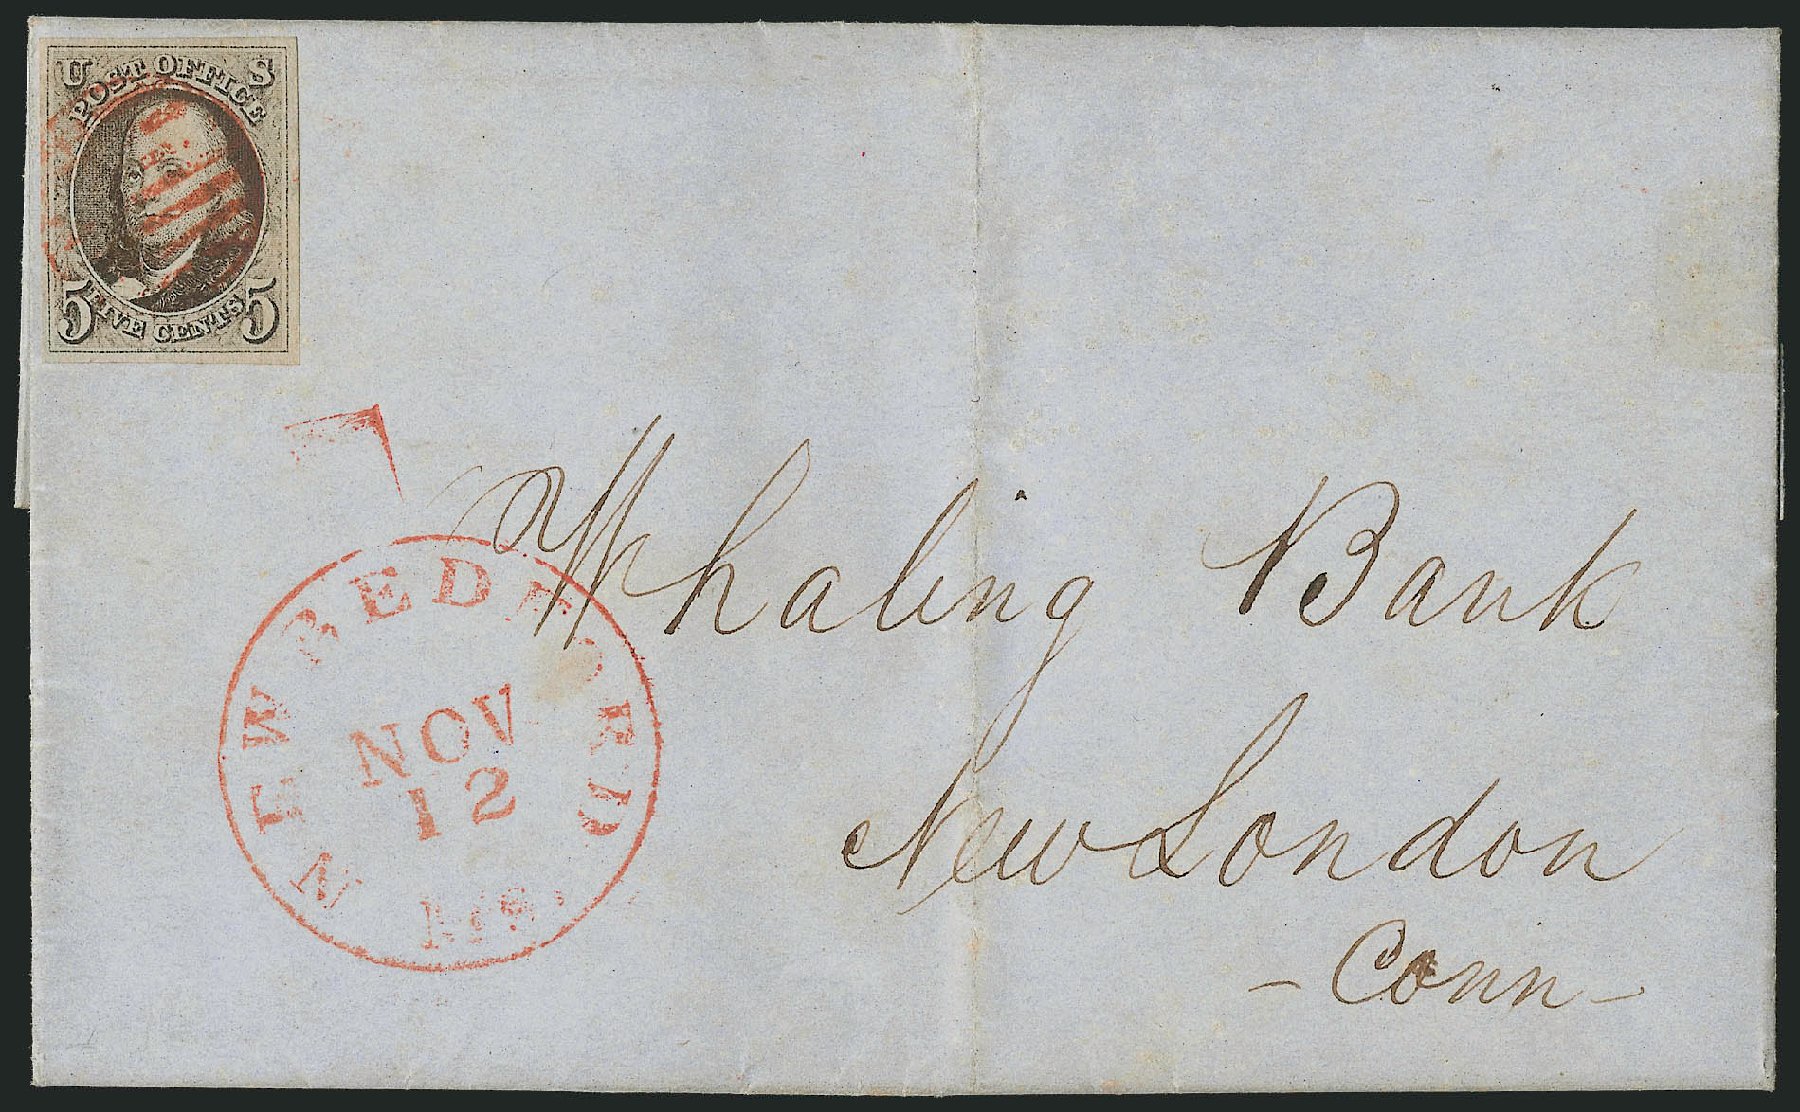 U S
POST OFFICE
5 FIVE CENTS 5
Whaling Bank
NEW BEDFORD
NOV
12
Ms.
New London
- Conn -